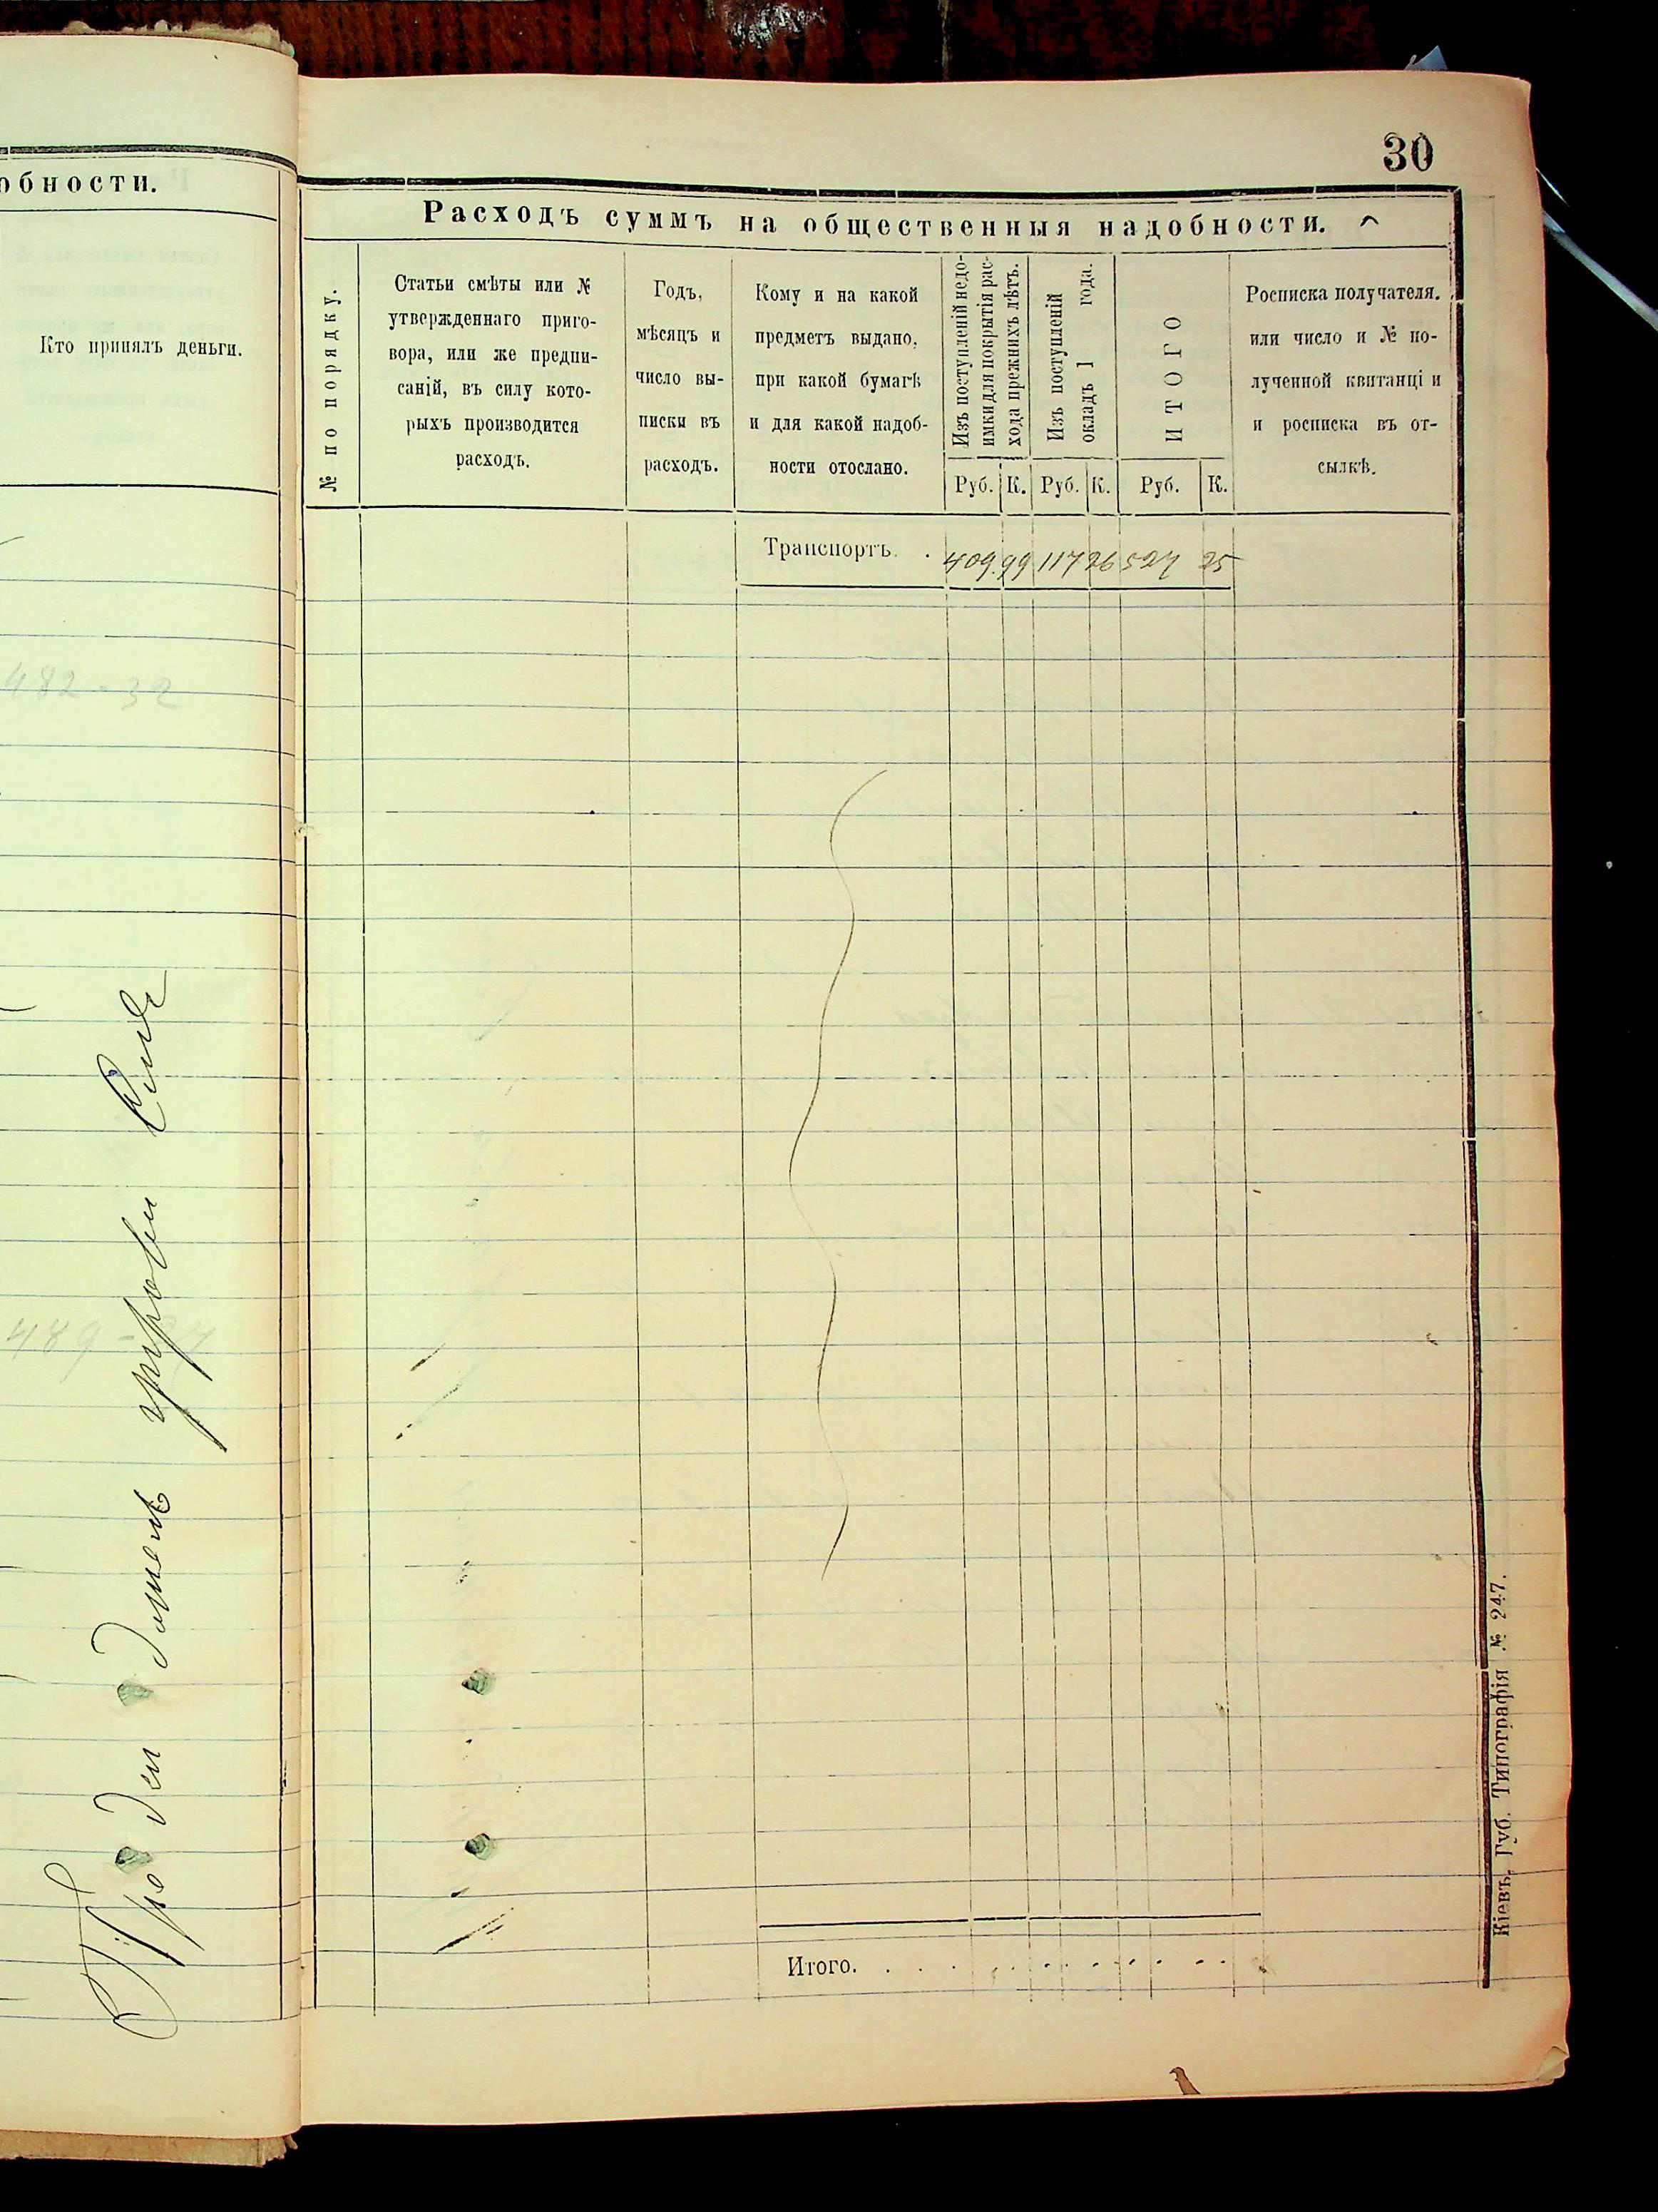 обности.
Кто принялъ деньги.
482-32
489-
30
Расходъ суммъ на общественныя надобности.
№ по порядку.
Статьи смѣты или №
утвержденнаго приго-
вора, или же предпи-
саній, въ силу кото-
рыхъ производится
расходъ.
Годъ,
мѣсяцъ и
число вы-
писки въ
расходъ.
Кому и на какой
предметъ выдано,
при какой бумагѣ
и для какой надоб-
ности отослано.
Изъ поступленій недо-
имки для покрытія рас-
хода прежнихъ лѣтъ.
Изъ поступленій
окладъ 1 года.
ИТОГО
Росписка получателя.
или число и № по-
лученной квитанціи
и росписка въ от-
сылкѣ.
Руб. К. Руб. К. Руб. К.
Транспортъ. . 409 99 117 26 527 25
Итого. . . .
Кіевъ, Губ. Типографія № 247.